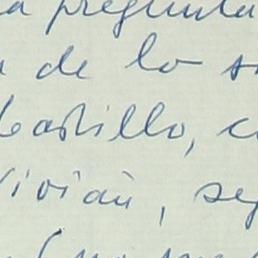 a pregunta
de lo s
Castillo, c
vivían, seg